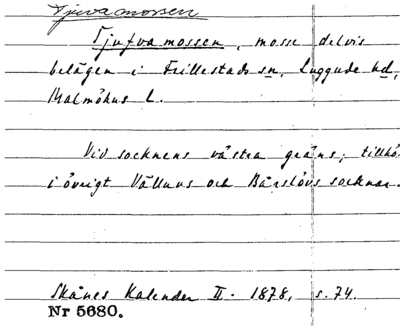 Tjuvamossen
Tjufvamossen, mosse delvis
belägen i Frillestads sn, Luggude hd,
Malmöhus L.
Vid socknens västra gräns; tillhö.
i övrigt Välluvs och Bårslövs socknar.
Skånes Kalender II. 1878, s. 74.
Nr 5680.